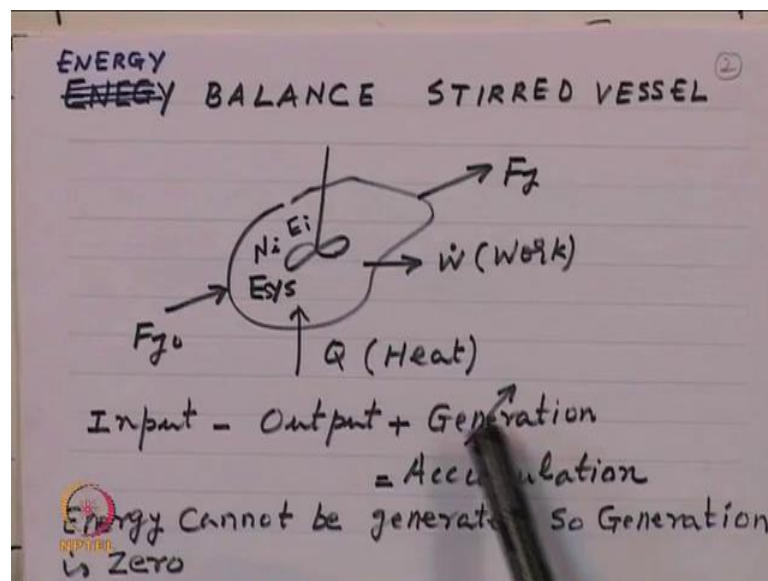 ENERGY
②
ENEGY BALANCE STIRRED VESSEL
Fj
Ni Ei
Ẇ (Work)
Esys
Fjo
Q (Heat)
Input - Output + Generation
= Accumulation
Energy cannot be generated so Generation
is zero
NPTEL